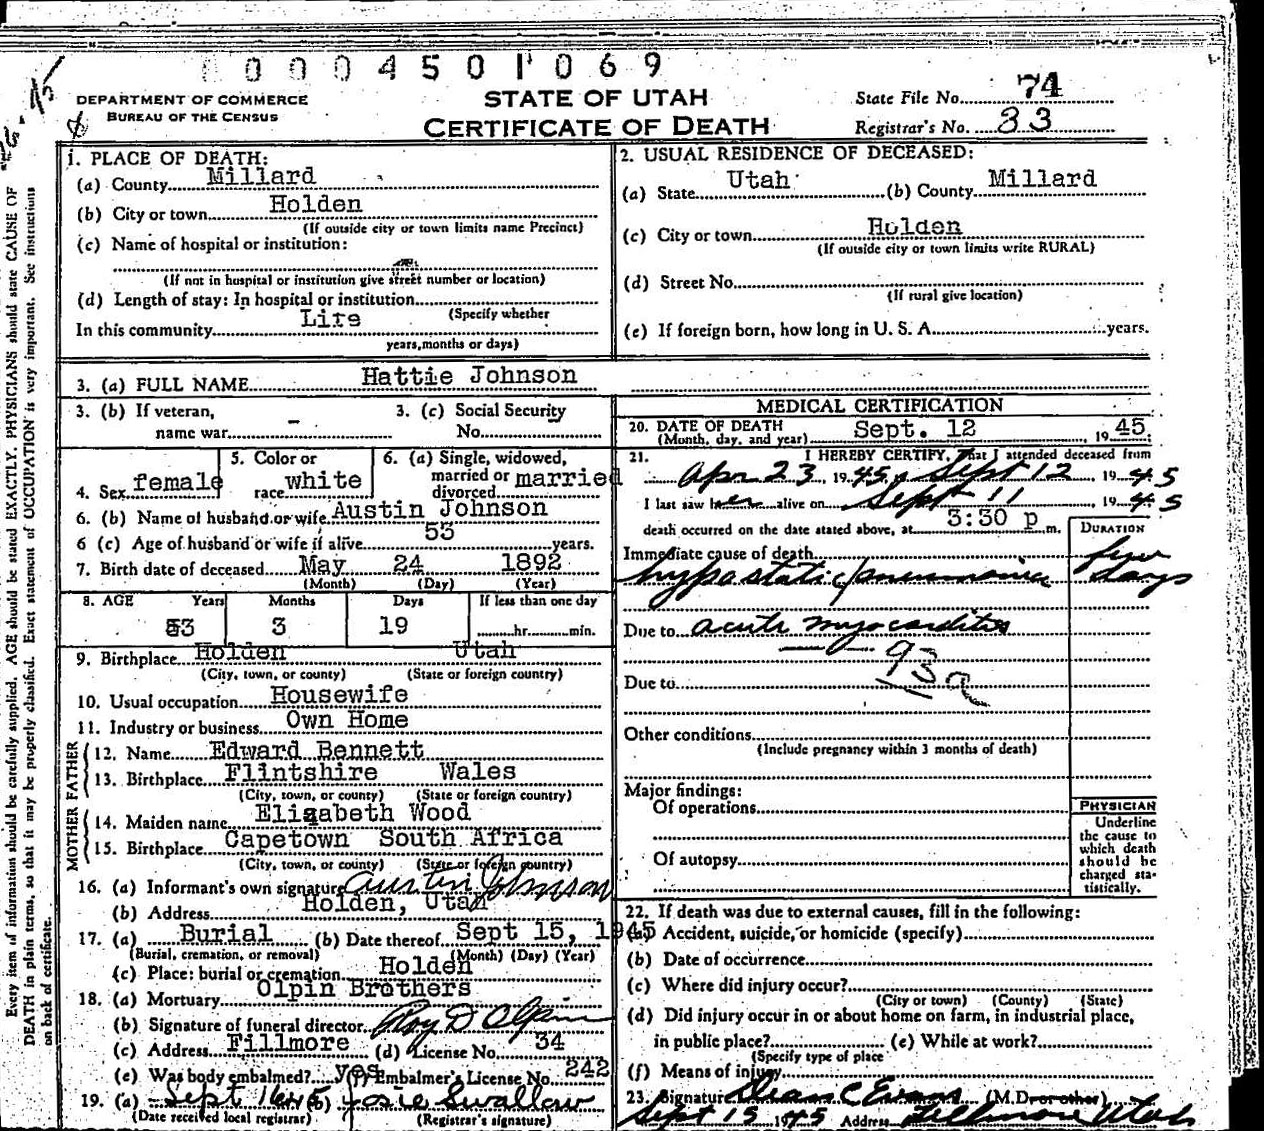 0004501069
DEPARTMENT OF COMMERCE
BUREAU OF THE CENSUS
STATE OF UTAH
CERTIFICATE OF DEATH
State File No. 74
Registrar's No. 33
Every item of information should be carefully supplied. AGE should be stated EXACTLY. PHYSICIANS should state CAUSE OF
DEATH in plain terms, so that it may be properly classified. Exact statement of OCCUPATION is very important. See instructions
on back of certificate.
1. PLACE OF DEATH:
(a) County Millard
(b) City or town Holden
(If outside city or town limits name Precinct)
(c) Name of hospital or institution:
(If not in hospital or institution give street number or location)
(d) Length of stay: In hospital or institution
(Specify whether
In this community Life
years, months or days)
2. USUAL RESIDENCE OF DECEASED:
(a) State Utah (b) County Millard
(c) City or town Holden
(If outside city or town limits write RURAL)
(d) Street No.
(If rural give location)
(e) If foreign born, how long in U. S. A. years.
3. (a) FULL NAME Hattie Johnson
3. (b) If veteran, name war -
3. (c) Social Security No.
4. Sex female
5. Color or race white
6. (a) Single, widowed, married or divorced married
6. (b) Name of husband or wife Austin Johnson
6 (c) Age of husband or wife if alive 53 years.
7. Birth date of deceased May 24 1892
(Month) (Day) (Year)
8. AGE Years Months Days If less than one day
53 3 19 hr. min.
9. Birthplace Holden Utah
(City, town, or county) (State or foreign country)
10. Usual occupation Housewife
11. Industry or business Own Home
FATHER
12. Name Edward Bennett
13. Birthplace Flintshire Wales
(City, town, or county) (State or foreign country)
MOTHER
14. Maiden name Elizabeth Wood
15. Birthplace Capetown South Africa
(City, town, or county) (State or foreign country)
16. (a) Informant's own signature Austin Johnson
(b) Address Holden, Utah
17. (a) Burial (b) Date thereof Sept 15, 1945
(Burial, cremation, or removal) (Month) (Day) (Year)
(c) Place: burial or cremation Holden
18. (a) Mortuary Olpin Brothers
(b) Signature of funeral director Roy D Olpin
(c) Address Fillmore (d) License No. 34
(e) Was body embalmed? yes (f) Embalmer's License No. 242
19. (a) Sept 16 45 (b) Josie Swallow
(Date received local registrar) (Registrar's signature)
MEDICAL CERTIFICATION
20. DATE OF DEATH
(Month, day, and year) Sept. 12, 1945
21. I HEREBY CERTIFY, That I attended deceased from
Apr 23, 1945, Sept 12 1945
I last saw her alive on Sept 11 1945
death occurred on the date stated above, at 3:30 p m.
DURATION
Immediate cause of death few
hypostatic pneumonia days
Due to acute myocarditis
93a
Due to
Other conditions
(Include pregnancy within 3 months of death)
Major findings:
Of operations
Of autopsy
PHYSICIAN
Underline
the cause to
which death
should be
charged sta-
tistically.
22. If death was due to external causes, fill in the following:
(a) Accident, suicide, or homicide (specify)
(b) Date of occurrence
(c) Where did injury occur?
(City or town) (County) (State)
(d) Did injury occur in or about home on farm, in industrial place,
in public place? (e) While at work?
(Specify type of place
(f) Means of injury
23. Signature Dean C Evans (M.D. or other)
Sept 15 1945 Address Fillmore Utah